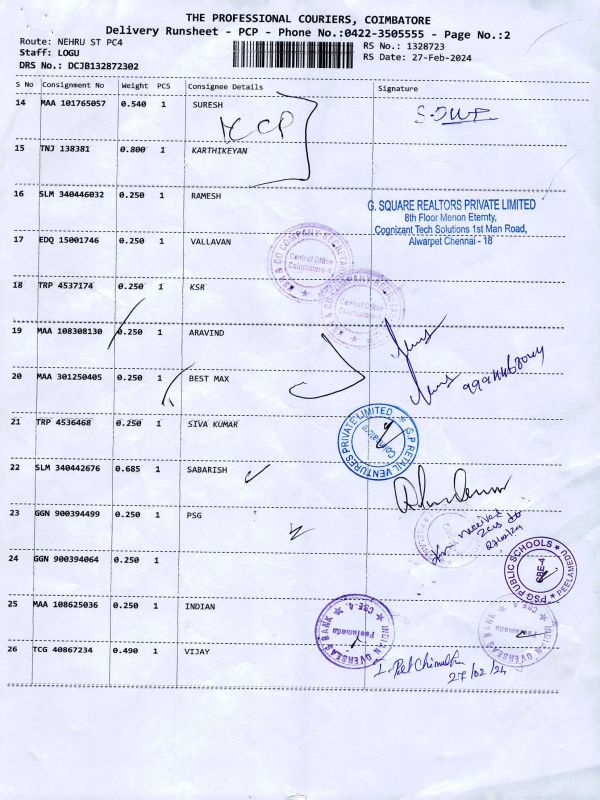 THE PROFESSIONAL COURIERS, COIMBATORE
Delivery Runsheet - PCP - Phone No.:0422-3505555 - Page No.:2
Route: NEHRU ST PC4
Staff: LOGU
DRS No.: DCJB132872302
RS No.: 1328723
RS Date: 27-Feb-2024
S No Consignment No Weight PCS Consignee Details Signature
14 MAA 101765057 0.540 1 SURESH
15 TNJ 138381 0.800 1 KARTHIKEYAN
16 SLM 340446032 0.250 1 RAMESH
G. SQUARE REALTORS PRIVATE LIMITED
8th Floor Menon Eternty,
Cognizant Tech Solutions 1st Man Road,
Alwarpet Chennai - 18
17 EDQ 15001746 0.250 1 VALLAVAN
Central Office
Coimbatore-
18 TRP 4537174 0.250 1 KSR
Central Office
Coimbatore-
19 MAA 108308130 0.250 1 ARAVIND
20 MAA 301250405 0.250 1 BEST MAX
21 TRP 4536468 0.250 1 SIVA KUMAR
S.P RETAIL VENTURES PRIVATE LIMITED
Coimbatore
22 SLM 340442676 0.685 1 SABARISH
23 GGN 900394499 0.250 1 PSG
received
24 GGN 900394064 0.250 1
PSG PUBLIC SCHOOLS
PEELAMEDU
CBE-4
25 MAA 108625036 0.250 1 INDIAN
INDIAN OVERSEAS BANK
CBE-4.
Peelamedu
INDIAN OVERSEAS BANK
CBE-4.
Peelamedu
26 TCG 40867234 0.490 1 VIJAY
27/02/24